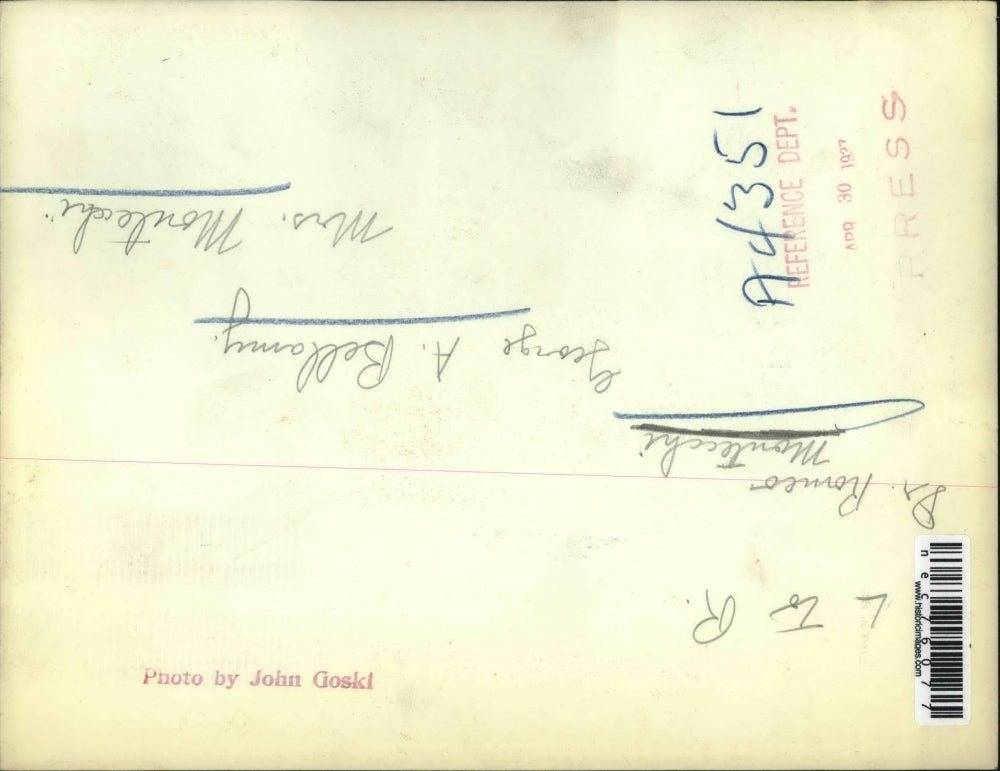 L to R.
Dr. Romeo
Montecchi
George A. Bellamy.
Mrs. Montecchi
A4351
REFERENCE DEPT.
APR 30 1937
PRESS
Photo by John Goski
nec76077
www.historicimages.com